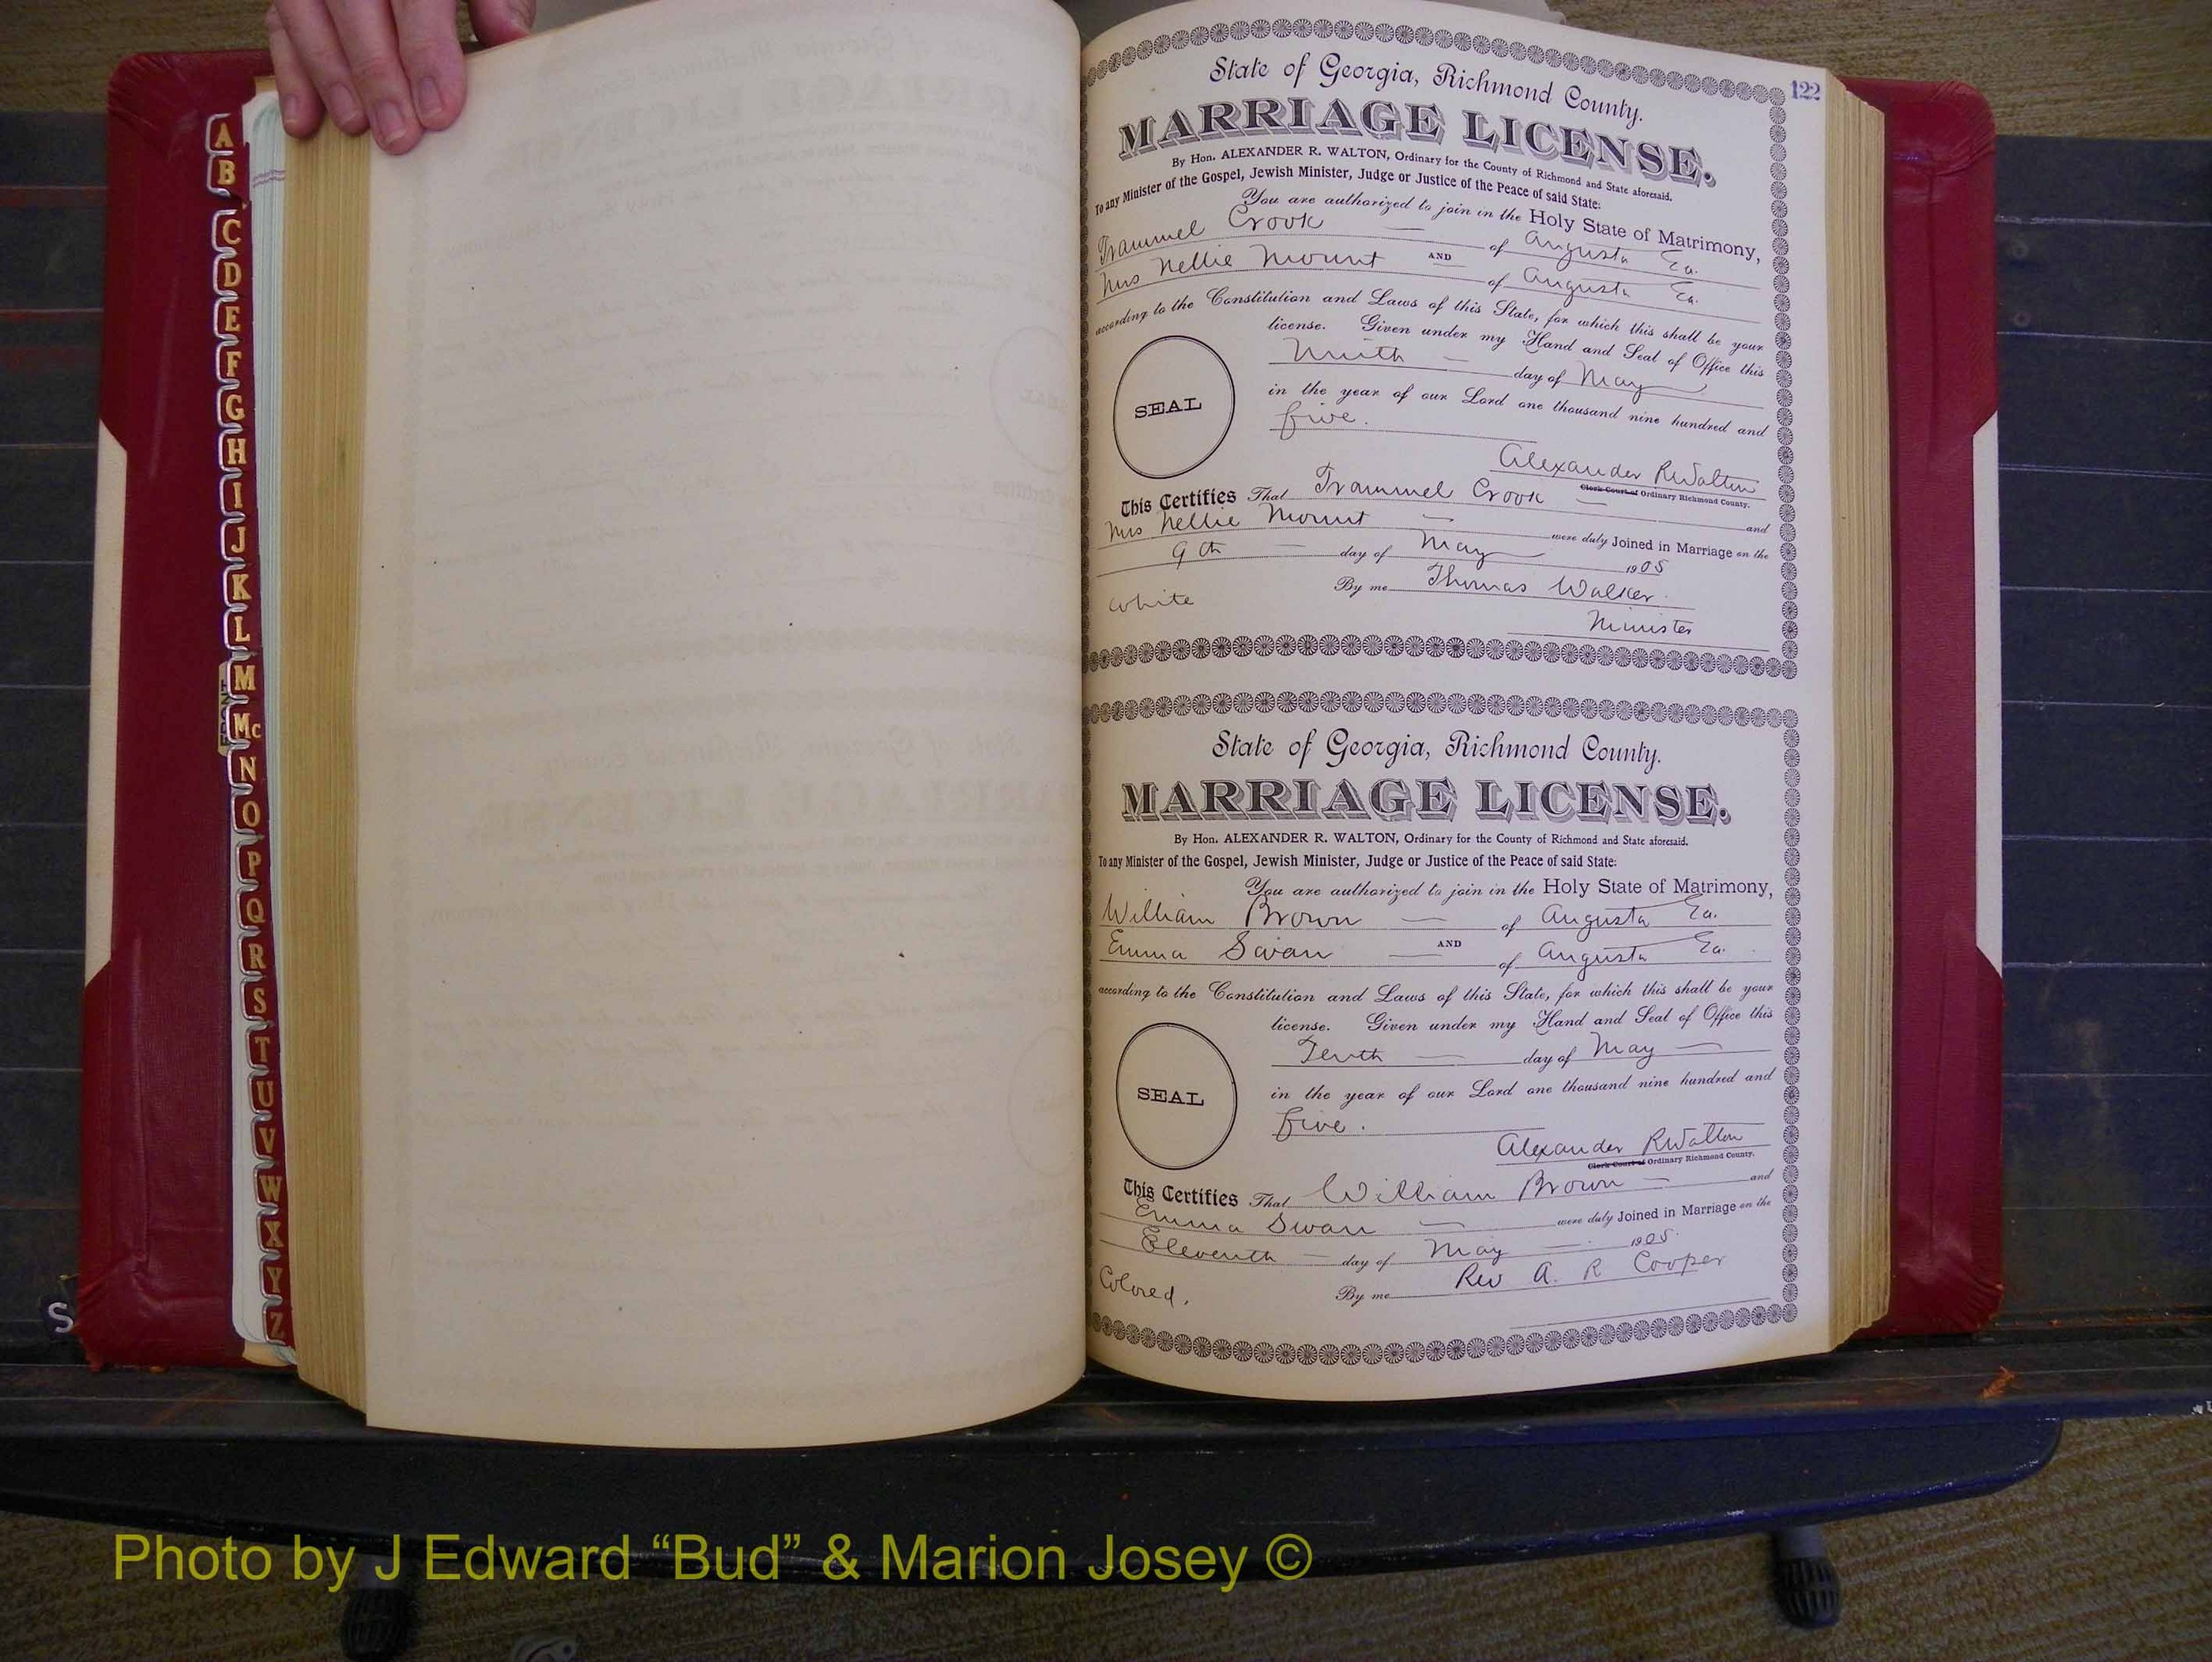 A
B
C
D
E
F
G
H
I
J
K
L
M
Mc
N
O
P
Q
R
S
T
U
V
W
X
Y
Z
122
State of Georgia, Richmond County.
MARRIAGE LICENSE.
By Hon. ALEXANDER R. WALTON, Ordinary for the County of Richmond and State aforesaid.
To any Minister of the Gospel, Jewish Minister, Judge or Justice of the Peace of said State:
You are authorized to join in the Holy State of Matrimony,
Trammel Crook — of Augusta Ga.
AND
Mrs Nellie Mount of Augusta Ga.
according to the Constitution and Laws of this State, for which this shall be your
license. Given under my Hand and Seal of Office this
Ninth — day of May
in the year of our Lord one thousand nine hundred and
five.
SEAL
Alexander R Walton
Clerk Court of Ordinary Richmond County.
This Certifies That Trammel Crook — and
Mrs Nellie Mount — were duly Joined in Marriage on the
9th — day of May 1905
By me Thomas Walker
white
Minister
State of Georgia, Richmond County.
MARRIAGE LICENSE.
By Hon. ALEXANDER R. WALTON, Ordinary for the County of Richmond and State aforesaid.
To any Minister of the Gospel, Jewish Minister, Judge or Justice of the Peace of said State:
You are authorized to join in the Holy State of Matrimony,
William Brown — of Augusta Ga.
AND
Emma Swan — of Augusta Ga.
according to the Constitution and Laws of this State, for which this shall be your
license. Given under my Hand and Seal of Office this
Tenth — day of May —
in the year of our Lord one thousand nine hundred and
five.
SEAL
Alexander R Walton
Clerk Court of Ordinary Richmond County.
This Certifies That William Brown — and
Emma Swan — were duly Joined in Marriage on the
Eleventh — day of May — 1905.
By me Rev A. R Cooper
Colored.
S
Photo by J Edward “Bud” & Marion Josey ©